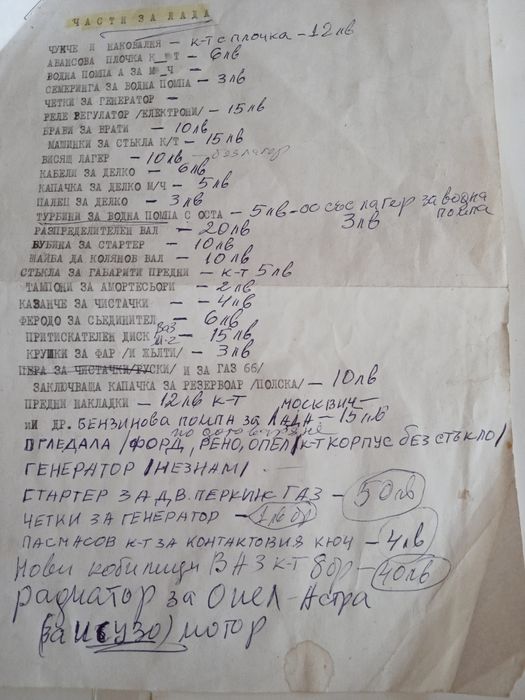 ЧАСТИ ЗА ЛАДА
ЧУКЧЕ И НАКОВАЛНЯ – к-т с плочка – 12 лв
АВАНСОВА ПЛОЧКА К Т – 6 лв
ВОДНА ПОМПА А ЗА М Ч –
СЕМЕРИНГА ЗА ВОДНА ПОМПА – 3 лв
ЧЕТКИ ЗА ГЕНЕРАТОР –
РЕЛЕ РЕГУЛАТОР /ЕЛЕКТРОНИ/ – 15 лв
БРАВИ ЗА ВРАТИ – 10 лв
МАШИНКИ ЗА СТЪКЛА К/Т – 15 лв
ВИСЯЩ ЛАГЕР – 10 лв – без лагер
КАБЕЛИ ЗА ДЕЛКО – 6 лв
КАПАЧКА ЗА ДЕЛКО М/Ч – 5 лв
ПАЛЕЦ ЗА ДЕЛКО – 3 лв
ТУРБИНИ ЗА ВОДНА ПОМПА С ОСТА – 5 лв – ос със лагер за водна помпа 3 лв
РАЗПРЕДЕЛИТЕЛЕН ВАЛ – 20 лв
БУБИНА ЗА СТАРТЕР – 10 лв
ШАЙБА ДА КОЛЯНОВ ВАЛ – 10 лв
СТЪКЛА ЗА ГАБАРИТИ ПРЕДНИ – к-т 5 лв
ТАМПОНИ ЗА АМОРТЕСЬОРИ – 2 лв
КАЗАНЧЕ ЗА ЧИСТАЧКИ – – 4 лв
ФЕРОДО ЗА СЪЕДИНИТЕЛ – 6 лв
ПРИТИСКАТЕЛЕН ДИСК ВАЗ М-2 – 15 лв
КРУШКИ ЗА ФАР /И ЖЪЛТИ/ – 3 лв
ПЕРА ЗА ЧИСТАЧКИ/РУСКИ/ И ЗА ГАЗ 66/
ЗАКЛЮЧВАЩА КАПАЧКА ЗА РЕЗЕРВОАР /ПОЛСКА/ – 10 лв
ПРЕДНИ НАКЛАДКИ – 12 лв к-т
иИ ДР. БЕНЗИНОВА ПОМПА ЗА ЛАДА МОСКВИЧ – 15 лв
по договаряне
ОГЛЕДАЛА /ФОРД, РЕНО, ОПЕЛ/ к-т КОРПУС БЕЗ СТЪКЛО/
ГЕНЕРАТОР /НЕЗНАМ/. –
СТАРТЕР ЗА Д.В. ПЕРКИНС ГАЗ – 50 лв
ЧЕТКИ ЗА ГЕНЕРАТОР – 1 лв бр
ПАСМАСОВ К-Т ЗА КОНТАКТОВИЯ КЛЮЧ – 4 лв
Нови кобилици ВАЗ к-т 8 бр – 40 лв
радиатор за Опел-Астра
(за ИСУЗО) мотор